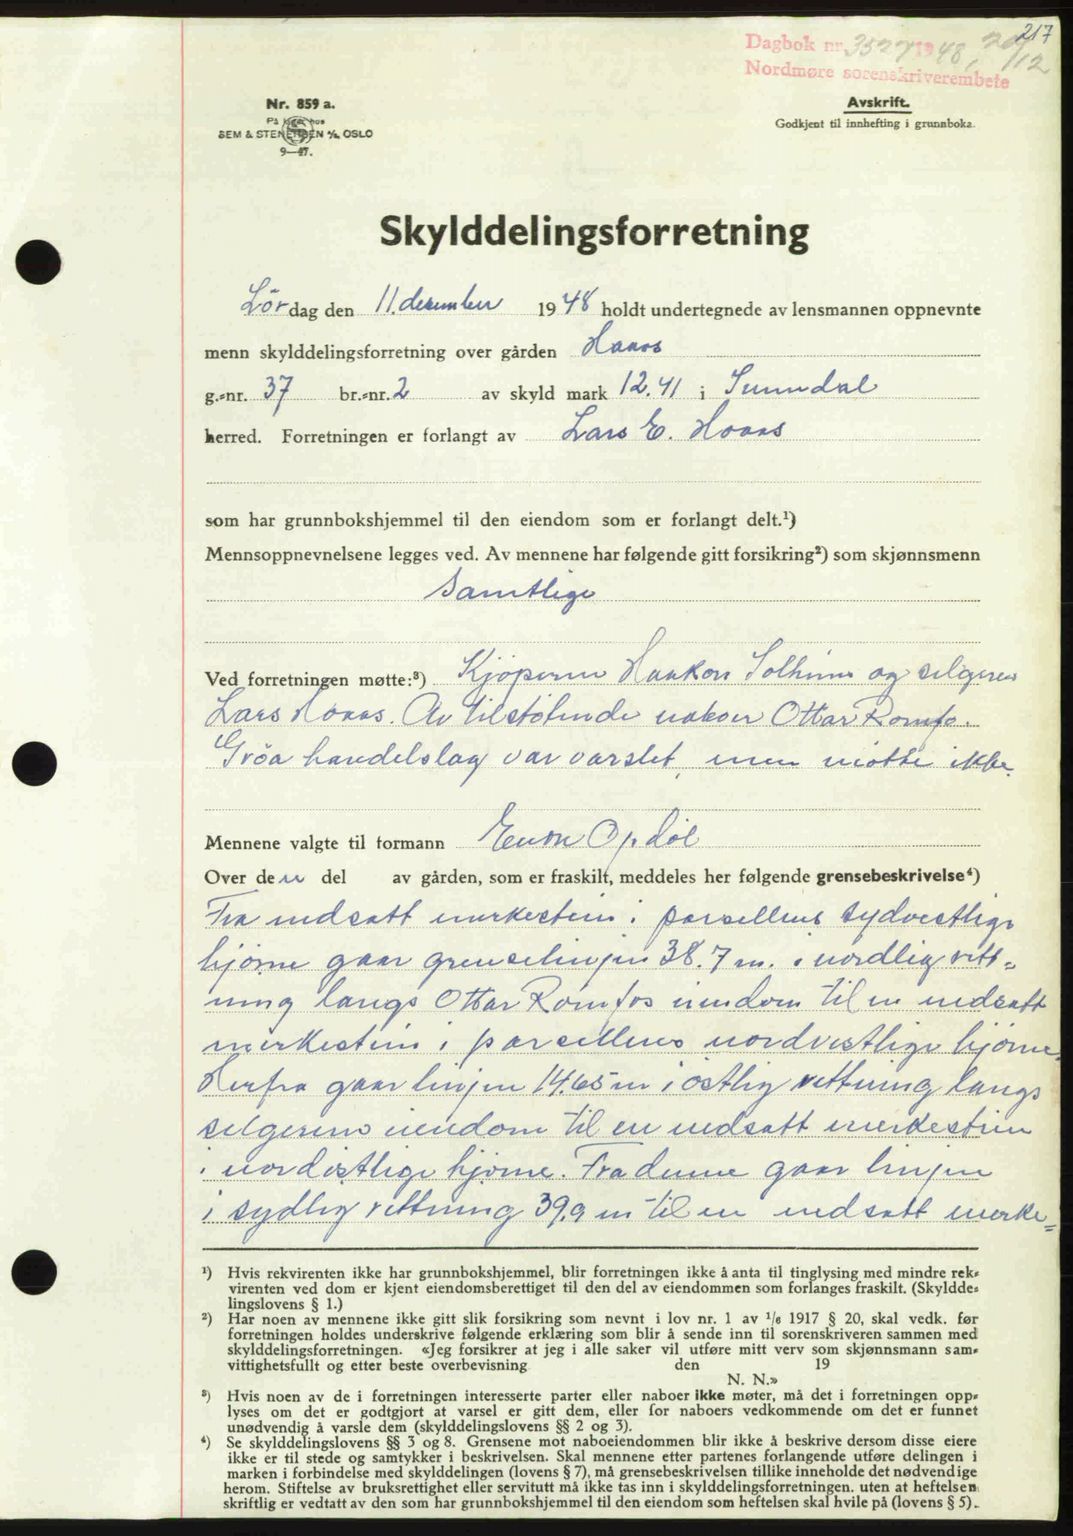 217
Dagbok nr. 3527 1948, 20/12
Nordmøre sorenskriverembete
Nr. 859 a.
På lager hos
SEM & STENERSEN A/S, OSLO
9—47.
Avskrift.
Godkjent til innhefting i grunnboka.
Skylddelingsforretning
Lördag den 11. desember 1948 holdt undertegnede av lensmannen oppnevnte
menn skylddelingsforretning over gården Haaas
g.-nr. 37 br.-nr. 2 av skyld mark 12.41 i Sunndal
herred. Forretningen er forlangt av Lars E. Hoaas
som har grunnbokshjemmel til den eiendom som er forlangt delt.¹)
Mennsoppnevnelsene legges ved. Av mennene har følgende gitt forsikring²) som skjønnsmenn
Samtlige
Ved forretningen møtte:³) Kjøperen Haakon Solheim og selgeren
Lars Hoaas. Av tilstøtende naboer Ottar Romfo.
Gröa handelslag var varslet, men møtte ikke.
Mennene valgte til formann Opdöl
Over den del av gården, som er fraskilt, meddeles her følgende grensebeskrivelse⁴)
Fra nedsatt merkestein i parsellens sydvestlige
hjørne gaar grenselinjen 38.7 m. i nordlig rett-
ning langs Ottar Romfos eiendom til en nedsatt
merkestein i parsellens nordvestlige hjørne.
Herfra gaar linjen 14.65 m i østlig rettning langs
selgerens eiendom til en nedsatt merkestein
i nordøstlige hjørne. Fra denne gaar linjen
i sydlig rettning 39.9 m til en nedsatt merke=
¹) Hvis rekvirenten ikke har grunnbokshjemmel, blir forretningen ikke å anta til tinglysing med mindre rek-
virenten ved dom er kjent eiendomsberettiget til den del av eiendommen som forlanges fraskilt. (Skyldde-
lingslovens § 1.)
²) Har noen av mennene ikke gitt slik forsikring som nevnt i lov nr. 1 av 1/6 1917 § 20, skal vedk. før
forretningen holdes underskrive følgende erklæring som blir å sende inn til sorenskriveren sammen med
skylddelingsforretningen. «Jeg forsikrer at jeg i alle saker vil utføre mitt verv som skjønnsmann sam-
vittighetsfullt og etter beste overbevisning den 19
N. N.»
³) Hvis noen av de i forretningen interesserte parter eller naboer ikke møter, må det i forretningen opp-
lyses om det er godtgjort at varsel er gitt dem, eller for naboers vedkommende om det er funnet
unødvendig å varsle dem (skylddelingslovens §§ 2 og 3).
⁴) Se skylddelingslovens §§ 3 og 8. Grensene mot naboeiendommen blir ikke å beskrive dersom disse eiere
ikke er til stede og samtykker i beskrivelsen. Skal mennene etter partenes forlangende utføre delingen i
marken i forbindelse med skylddelingen (lovens § 7), må grensebeskrivelsen tillike inneholde det nødvendige
herom. Stiftelse av bruksrettighet eller servitutt må ikke tas inn i skylddelingsforretningen. uten at heftelsen
skriftlig er vedtatt av den som har grunnbokshjemmel til den eiendom som heftelsen skal hvile på (lovens § 5).